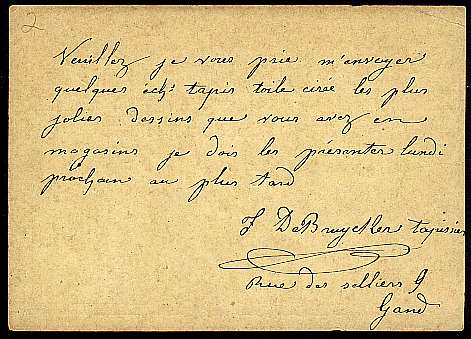 2
Veuillez je vous prie m'envoyer
quelques éch: tapis toile cirée les plus
jolies dessins que vous avez en
magasins je dois les présenter lundi
prochain au plus tard
J DeBruycker tapissier
Rue des selliers 9
Gand